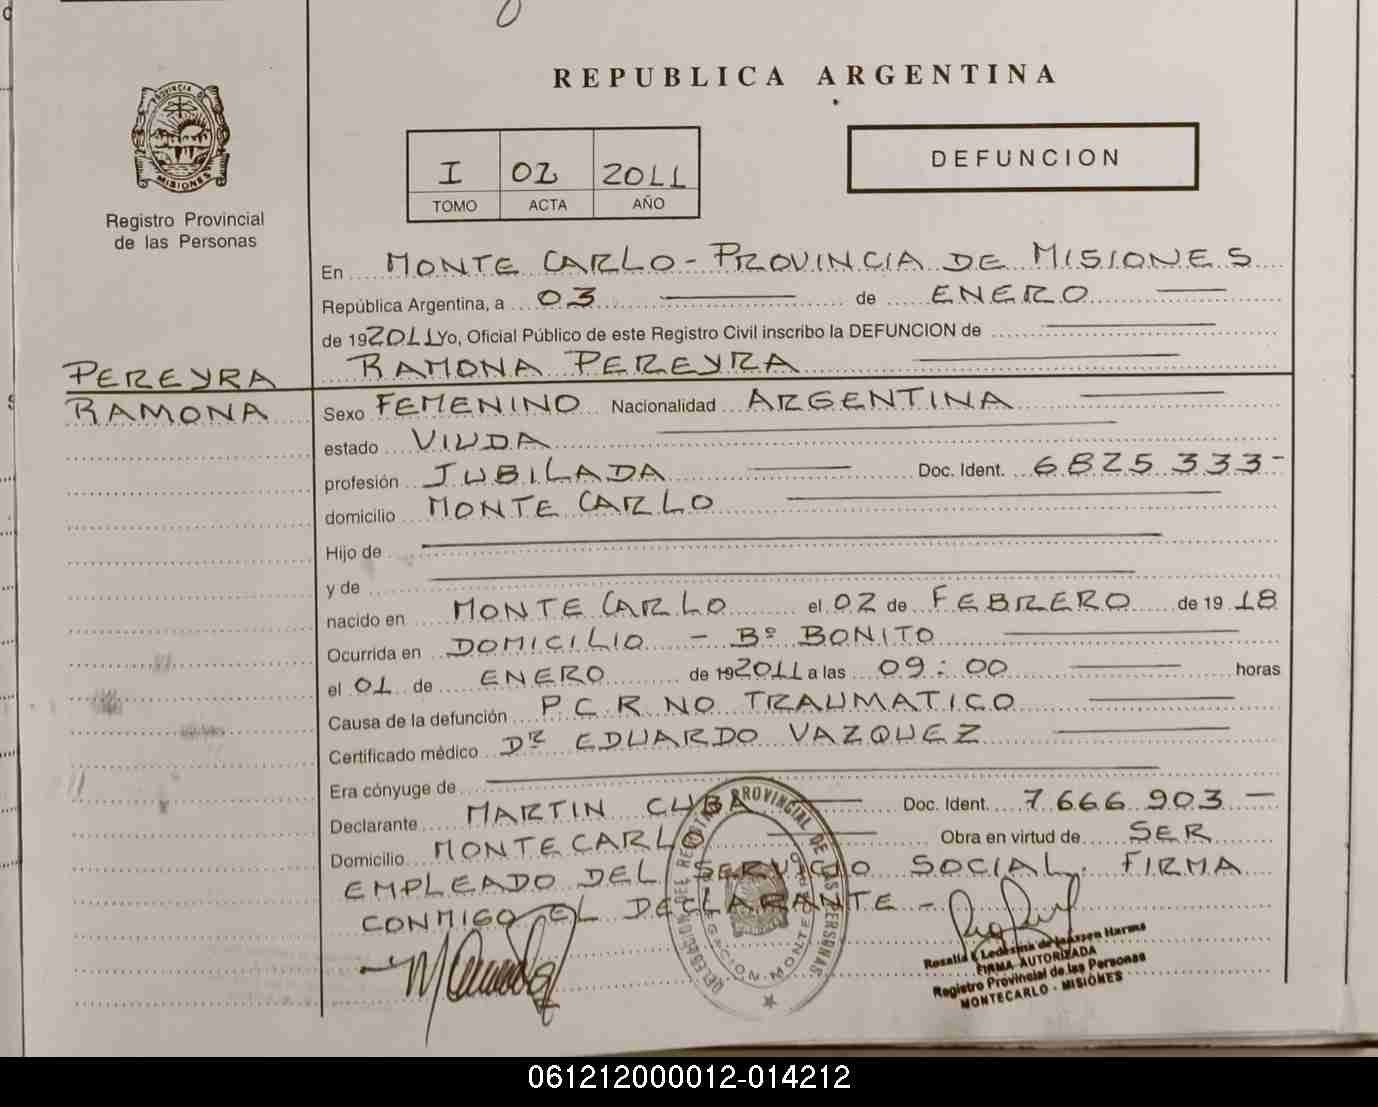 REPUBLICA ARGENTINA
PROVINCIA DE
MISIONES
Registro Provincial
de las Personas
I 02 2011
TOMO ACTA AÑO
DEFUNCION
En MONTE CARLO - PROVINCIA DE MISIONES
República Argentina, a 03 de ENERO
de 192011 Yo, Oficial Público de este Registro Civil inscribo la DEFUNCION de
PEREYRA
RAMONA
RAMONA PEREYRA
Sexo FEMENINO Nacionalidad ARGENTINA
estado VIUDA
profesión JUBILADA Doc. Ident. 6825333-
domicilio MONTE CARLO
Hijo de
y de
nacido en MONTE CARLO el 02 de FEBRERO de 19 18
Ocurrida en DOMICILIO - Bº BONITO
el 01 de ENERO de 192011 a las 09:00 horas
Causa de la defunción P C R NO TRAUMATICO
Certificado médico Dr EDUARDO VAZQUEZ
Era cónyuge de
Declarante MARTIN CUBA Doc. Ident. 7666903 -
Domicilio MONTE CARLO Obra en virtud de SER
EMPLEADO DEL SERVICIO SOCIAL. FIRMA
CONMIGO EL DECLARANTE -
PROVINCIAL DE LAS PERSONAS
Rosalia Ledesma de Harms
FIRMA AUTORIZADA
Registro Provincial de las Personas
MONTECARLO - MISIONES
061212000012-014212